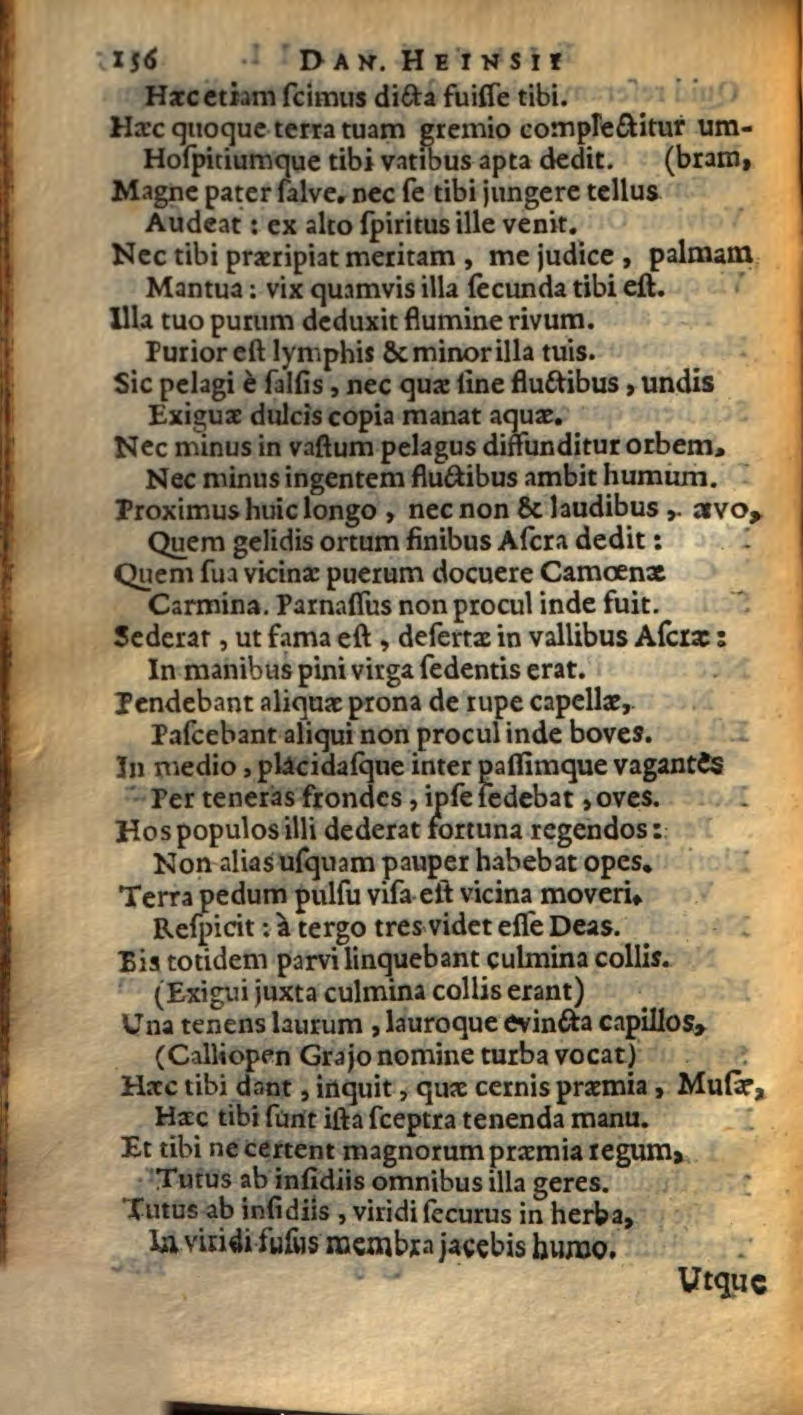 156 DAN. HEINSII
Hæc etiam ſcimus dicta fuiſſe tibi.
Hæc quoque terra tuam gremio complectitur um-
Hoſpitiumque tibi vatibus apta dedit. (bram,
Magne pater ſalve, nec ſe tibi jungere tellus
Audeat : ex alto ſpiritus ille venit.
Nec tibi præripiat meritam , me judice , palmam
Mantua : vix quamvis illa ſecunda tibi eſt.
Illa tuo purum deduxit flumine rivum.
Purior eſt lymphis & minor illa tuis.
Sic pelagi è ſalſis , nec quæ ſine fluctibus , undis
Exiguæ dulcis copia manat aquæ.
Nec minus in vaſtum pelagus diffunditur orbem,
Nec minus ingentem fluctibus ambit humum.
Proximus huic longo , nec non & laudibus , ævo,
Quem gelidis ortum finibus Aſcra dedit :
Quem ſua vicinæ puerum docuere Camœnæ
Carmina. Parnaſſus non procul inde fuit.
Sederat , ut fama eſt , deſertæ in vallibus Aſcræ :
In manibus pini virga ſedentis erat.
Pendebant aliquæ prona de rupe capellæ,
Paſcebant aliqui non procul inde boves.
In medio , placidaſque inter paſſimque vagantes
Per teneras frondes , ipſe ſedebat , oves.
Hos populos illi dederat fortuna regendos :
Non alias uſquam pauper habebat opes.
Terra pedum pulſu viſa eſt vicina moveri.
Reſpicit : à tergo tres videt eſſe Deas.
Bis totidem parvi linquebant culmina collis.
(Exigui juxta culmina collis erant)
Una tenens laurum , lauroque evincta capillos,
(Calliopen Grajo nomine turba vocat)
Hæc tibi dant , inquit , quæ cernis præmia , Muſæ,
Hæc tibi ſunt iſta ſceptra tenenda manu.
Et tibi ne certent magnorum præmia regum,
Tutus ab inſidiis omnibus illa geres.
Tutus ab inſidiis , viridi ſecurus in herba,
In viridi fuſus membra jacebis humo.
Utque